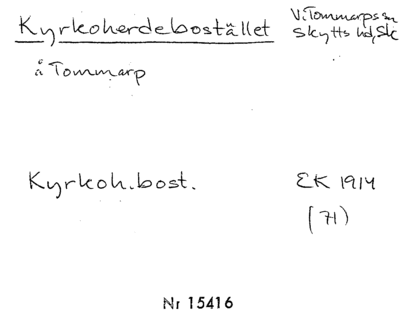 Kyrkoherdebostället
V. Tommarps sn
Skytts hd, Sk
å Tommarp
Kyrkoh.bost.
EK 1914
(71)
Nr 15416